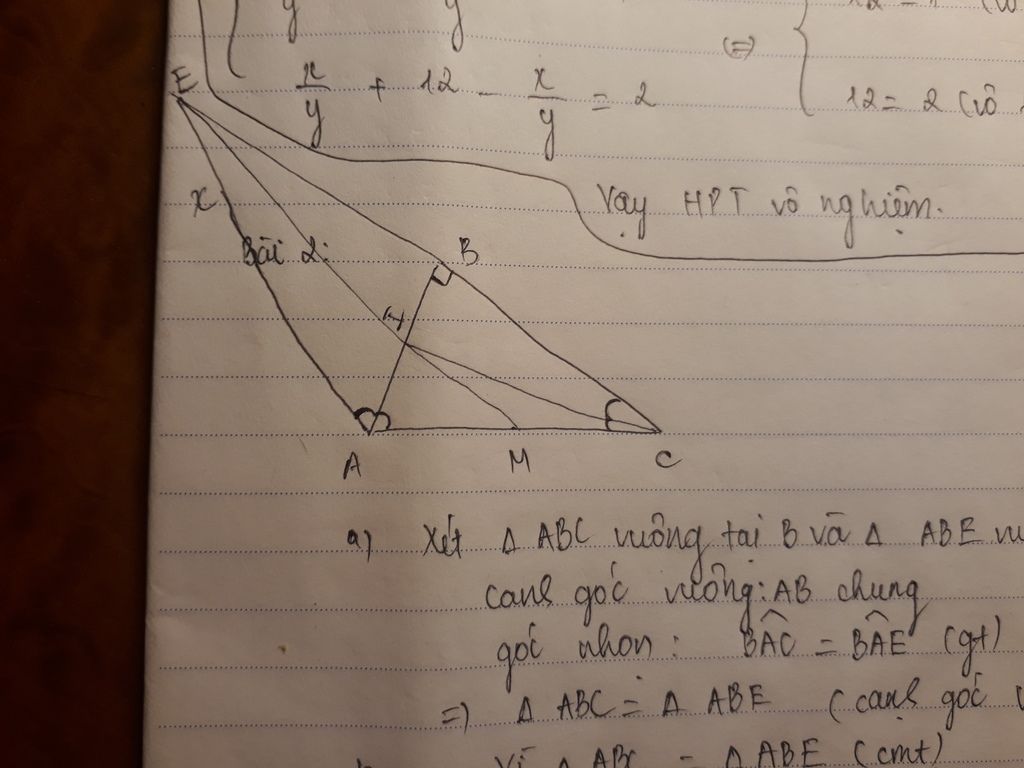 y y
(=)
x/y + 12 - x/y = 2
12 = 2 (vô
Vậy HPT vô nghiệm.
E
x
Bài 2:
B
H
A M C
a) Xét Δ ABC vuông tại B và Δ ABE
cạnh góc vuông: AB chung
góc nhọn: BÂC = BÂE (gt)
=) Δ ABC = Δ ABE (cạnh góc
Vì Δ ABC = Δ ABE (cmt)